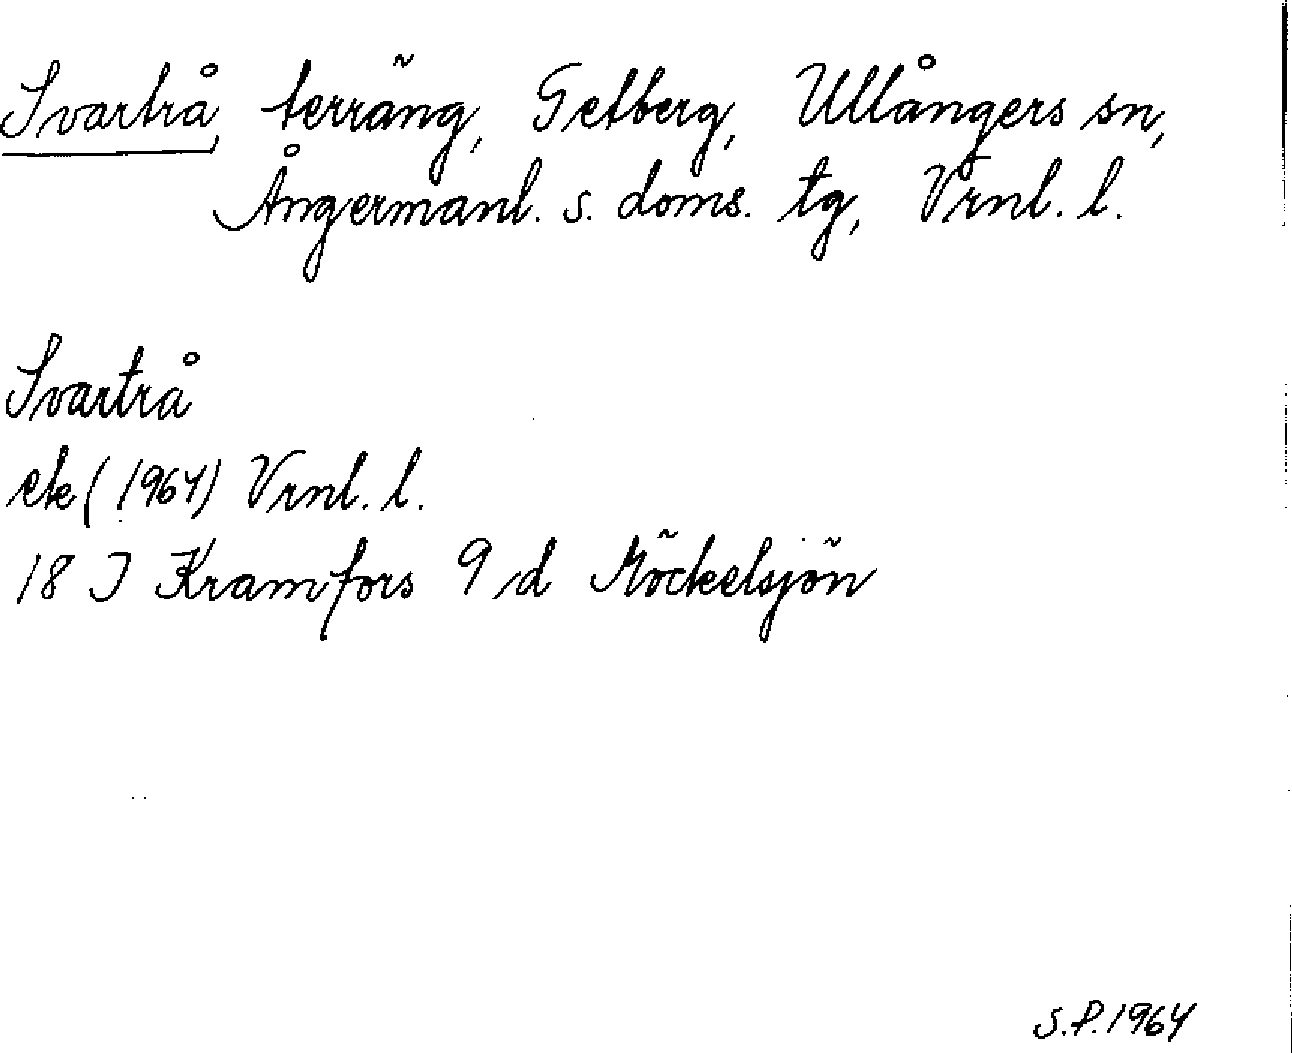 Svartrå, terräng, Getberg, Ullångers sn,
Ångermanl. s. doms. tg, Vrnl. l.
Svartrå
ek (1964) Vrnl. l.
18 I Kramfors 9 d Möckelsjön
S.P. 1964